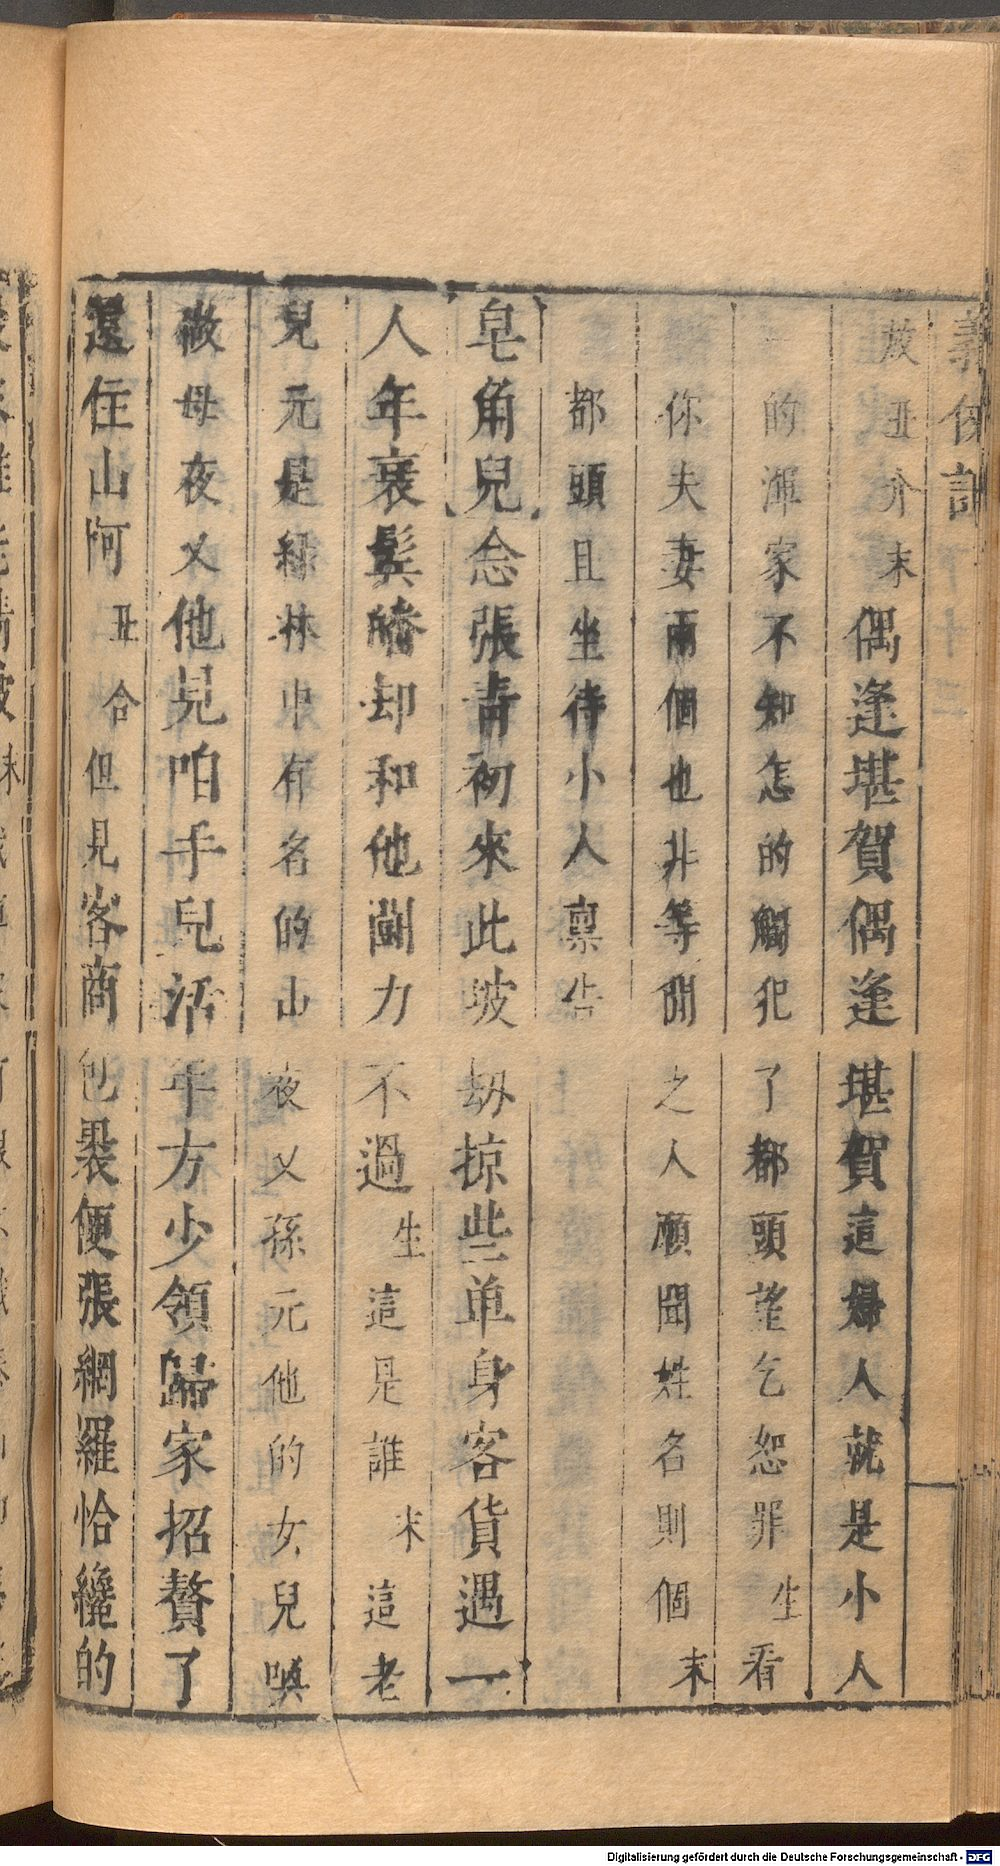 義俠記
放丑介末偶逢堪賀偶逢堪賀這婦人就是小人
的渾家不知怎的觸犯了都頭望乞恕罪生看
你夫妻兩個也非等閒之人願聞姓名則個末
都頭且坐待小人禀告
皂角兒念張青初來此坡劫掠些单身客貨遇一
人年衰鬂皤却和他鬪力不過生這是誰末這老
兒元是綠林中有名的山夜乂孫元他的女兒喚
做母夜乂他見咱手兒活年方少領歸家招贅了
還住山阿丑合但見客商包裹便張網羅恰纔的
Digitalisierung gefördert durch die Deutsche Forschungsgemeinschaft - DFG